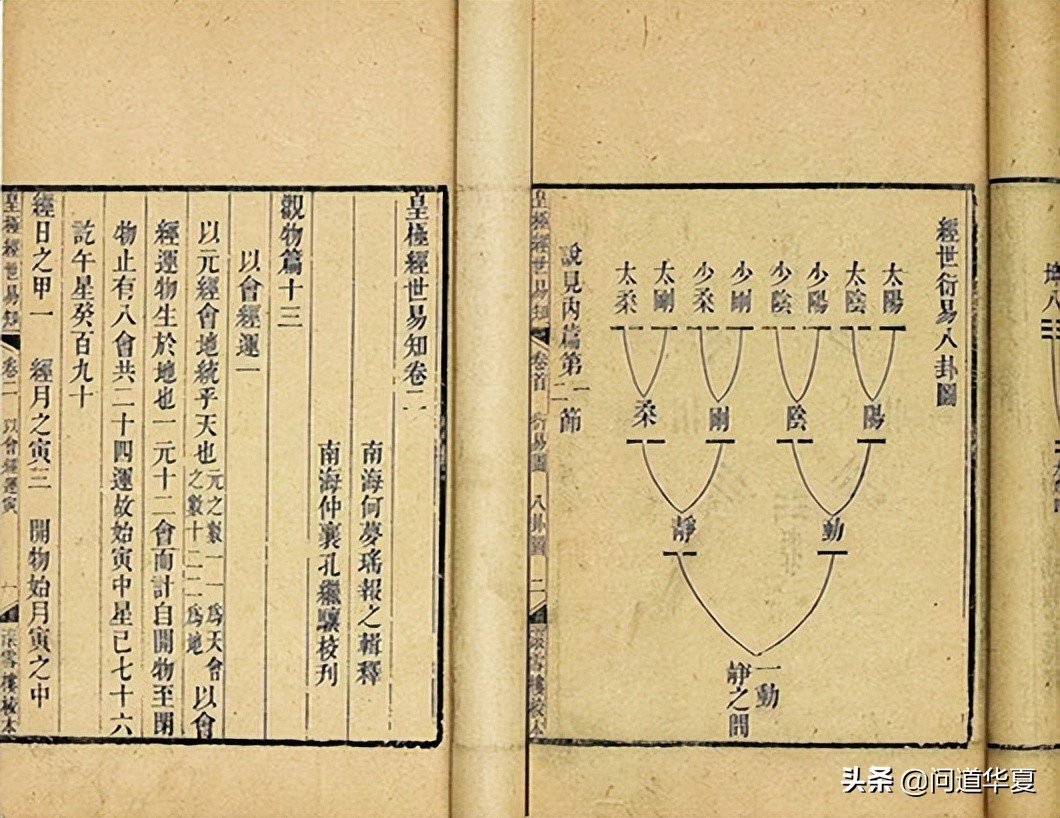 經世衍易八卦圖
太陽 太陰 少陽 少陰 少剛 少柔 太剛 太柔
陽 陰 剛 柔
動 靜
一動
靜之間
說見內篇第一二節
皇極經世易知 卷首 衍易圖 八卦圖 二 雪樓校本
皇極經世易知卷二
南海何夢瑤報之輯釋
南海仲襄孔繼驤校刊
觀物篇十三
以會經運一
以元經會地統乎天也元之數一一為天會之數十二二為地以會
經運物生於地也一元十二會而計自開物至閉
物止有八會共二十四運故始寅中星已七十六
訖午星癸百九十
經日之甲一 經月之寅三 開物始月寅之中
皇極經世易知 卷二 以會經運寅 一 雪樓校本
头条 @问道华夏